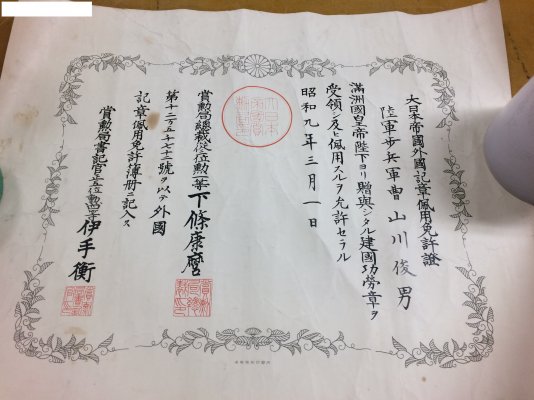 大日本帝國外國記章佩用免許證
陸軍步兵軍曹 山川俊男
滿洲國皇帝陛下ヨリ贈與シタル建國功勞章ヲ
受領シ及ヒ佩用スルヲ允許セラル
昭和九年三月一日
大日本帝國賞勲局印
賞勲局總裁從位勲一等下條康麿
第十二万五千七十三號ヲ以テ外國
記章佩用免許簿册ニ記入ス
賞勲局書記官正五位勲四等伊手衡